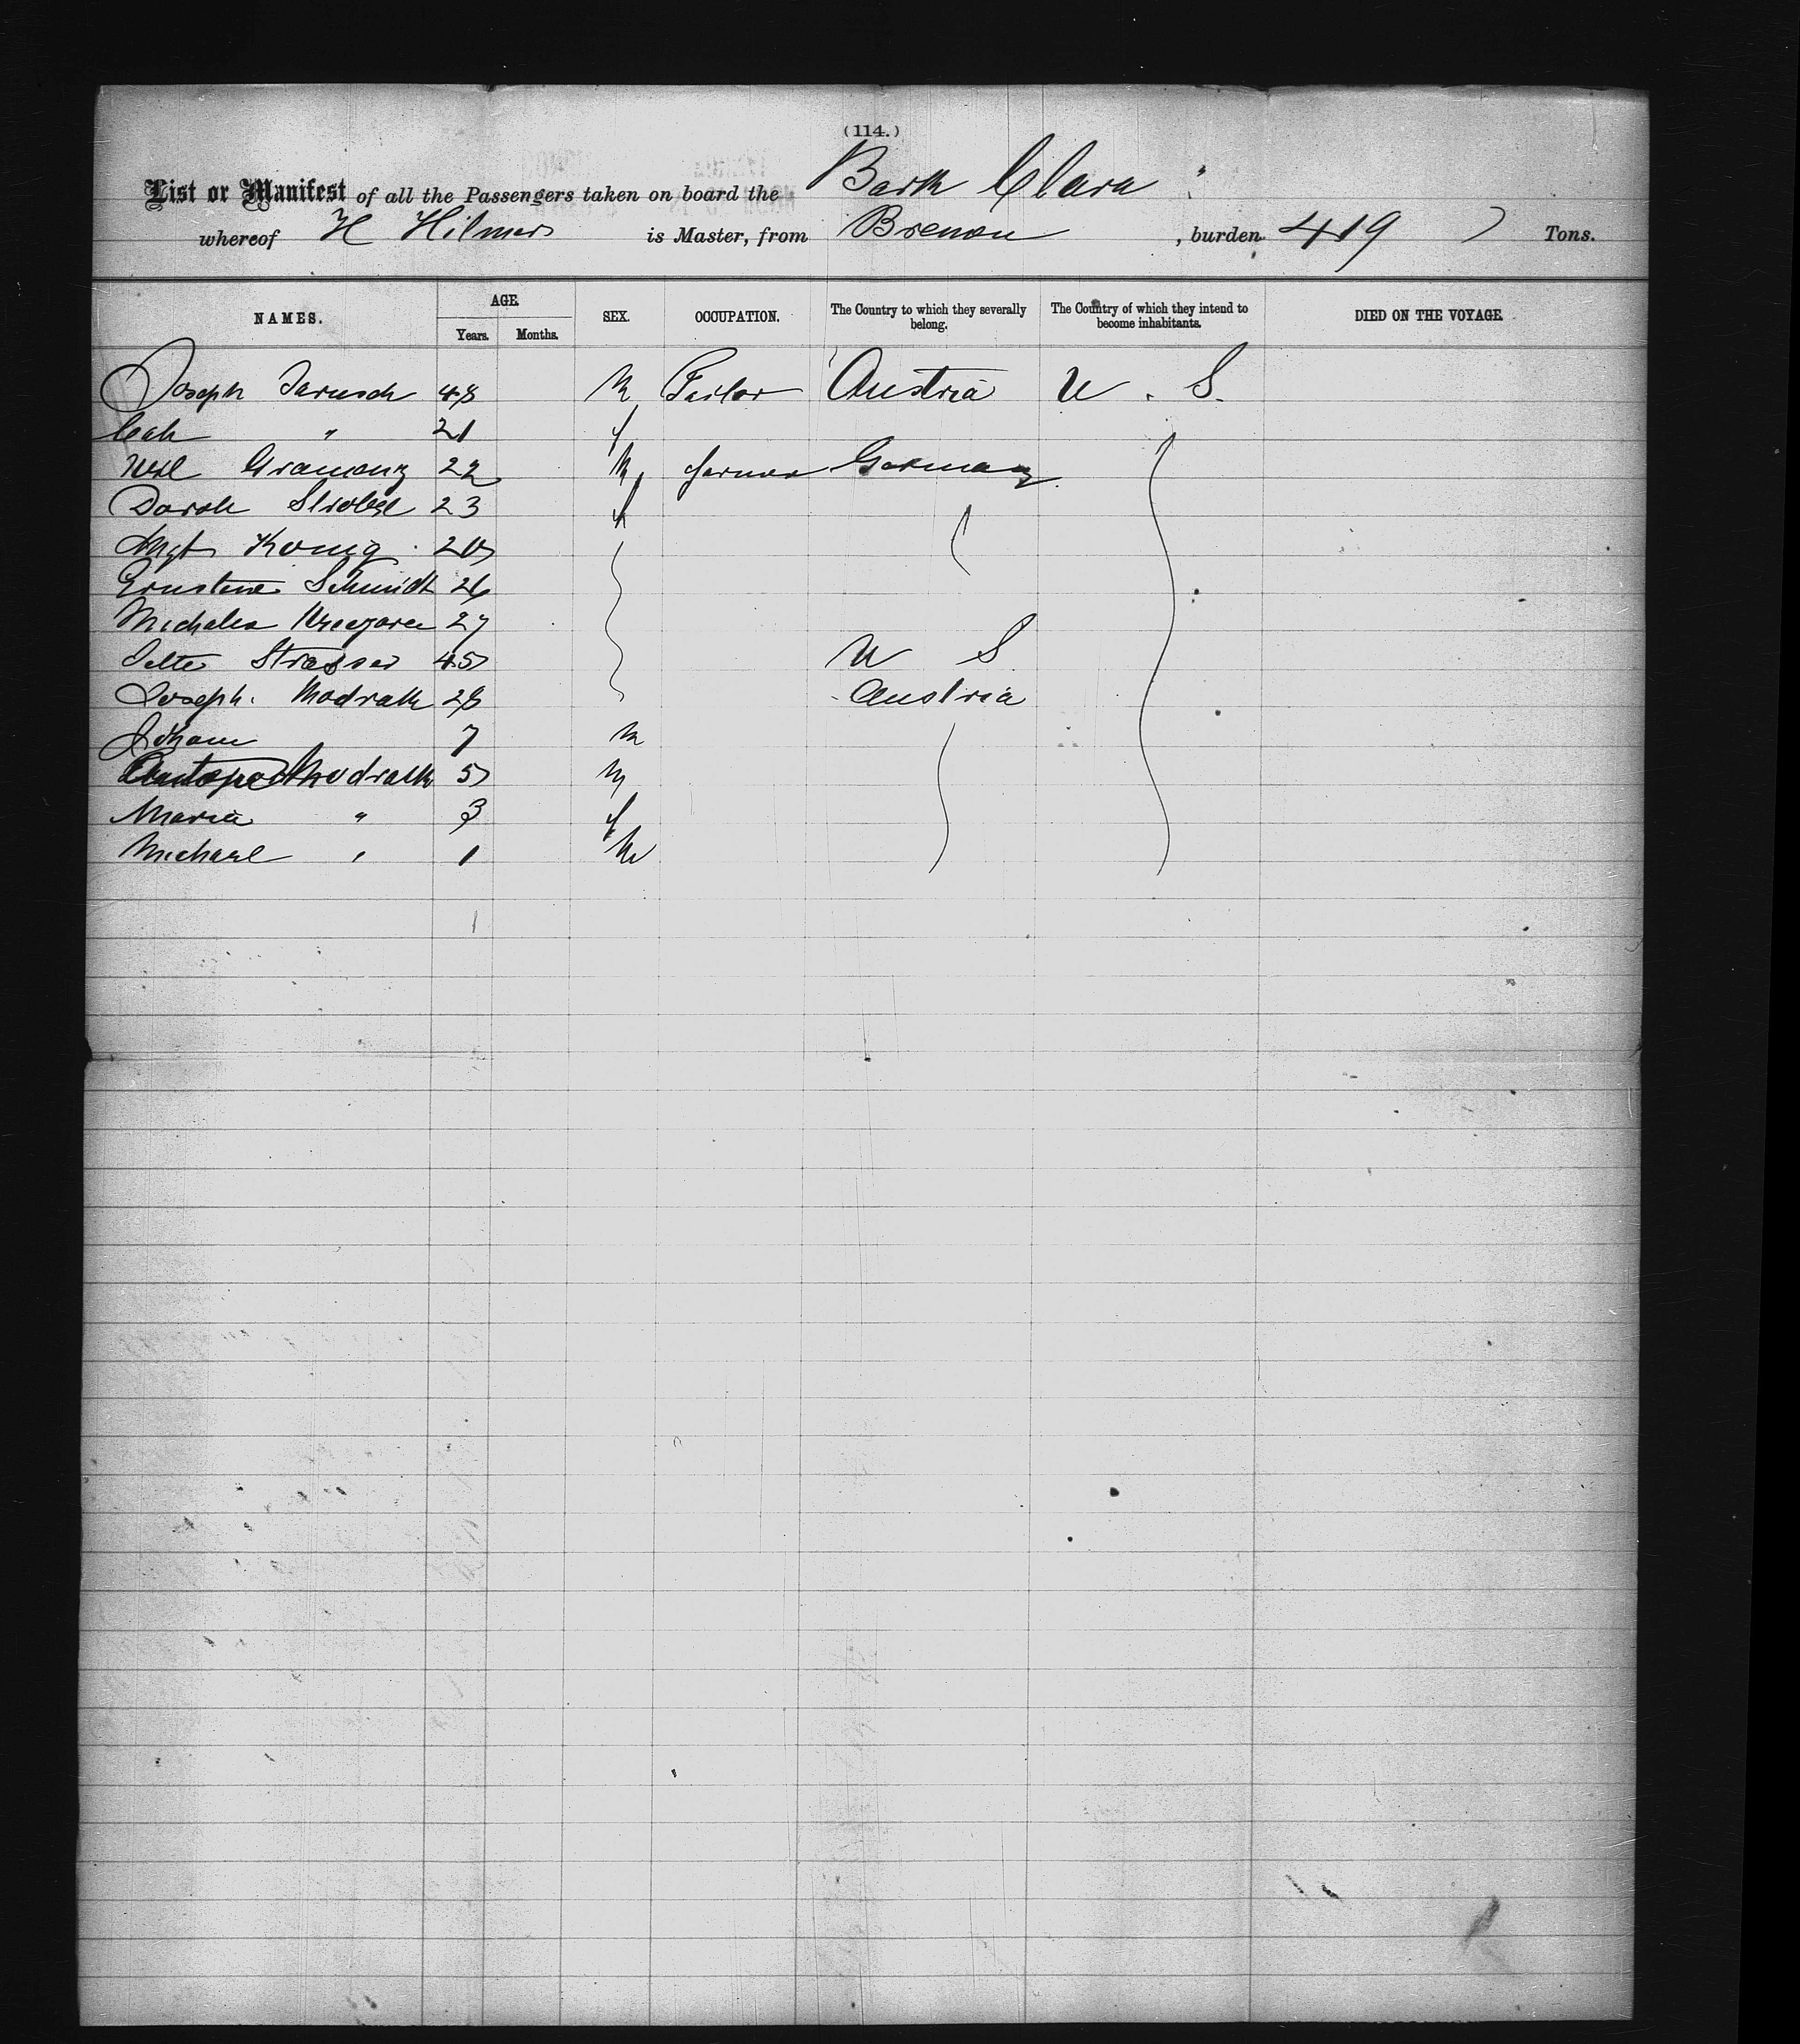 (114.)
List or Manifest of all the Passengers taken on board the Bark Clara
whereof H Hilmers is Master, from Bremen, burden 419 Tons.
NAMES. AGE. SEX. OCCUPATION. The Country to which they severally belong. The Country of which they intend to become inhabitants. DIED ON THE VOYAGE.
Years. Months.
Joseph Jarusch 48 M Tailor Austria U. S.
Cath " 21 f
Gramenz 22 M farmer Germany
Doroh Strobel 23 f
König 20
Ernstine Schmidt 26
27
Strasser 45 U S
Joseph. Modrath 28 Austria
Johann 7 M
Modrath 5 M
Maria " 3 f
Michael " 1 M